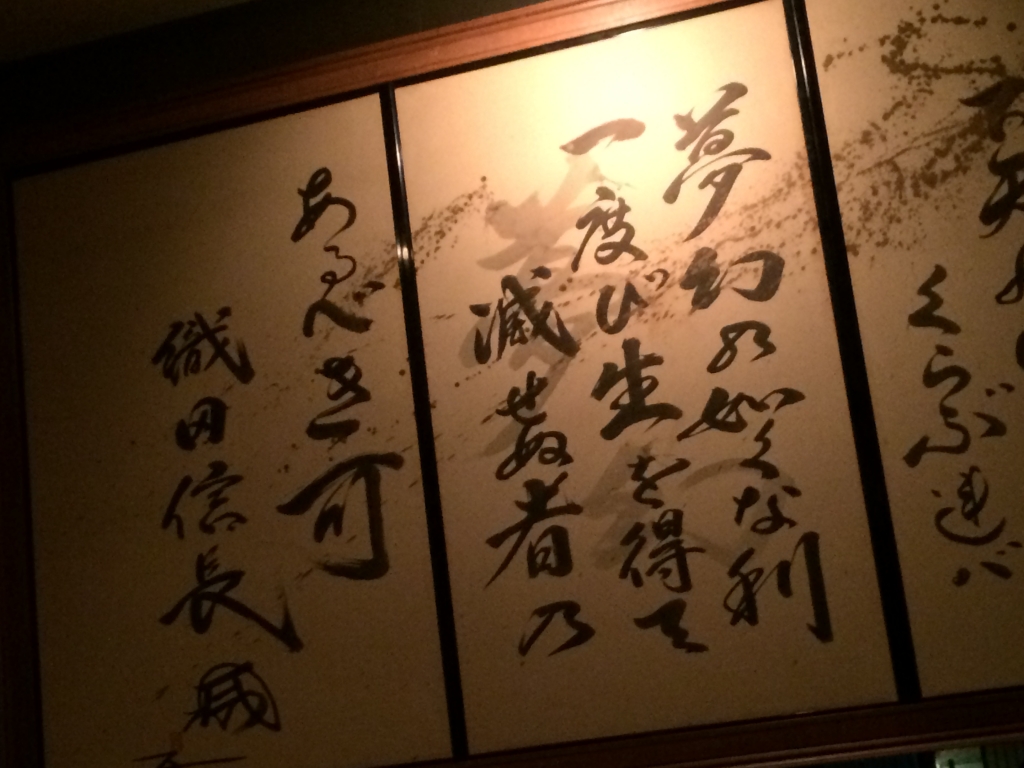 くらぶ連バ
夢幻の如くな利
一度び生を得て
滅せぬ者乃
あるべき可
織田信長